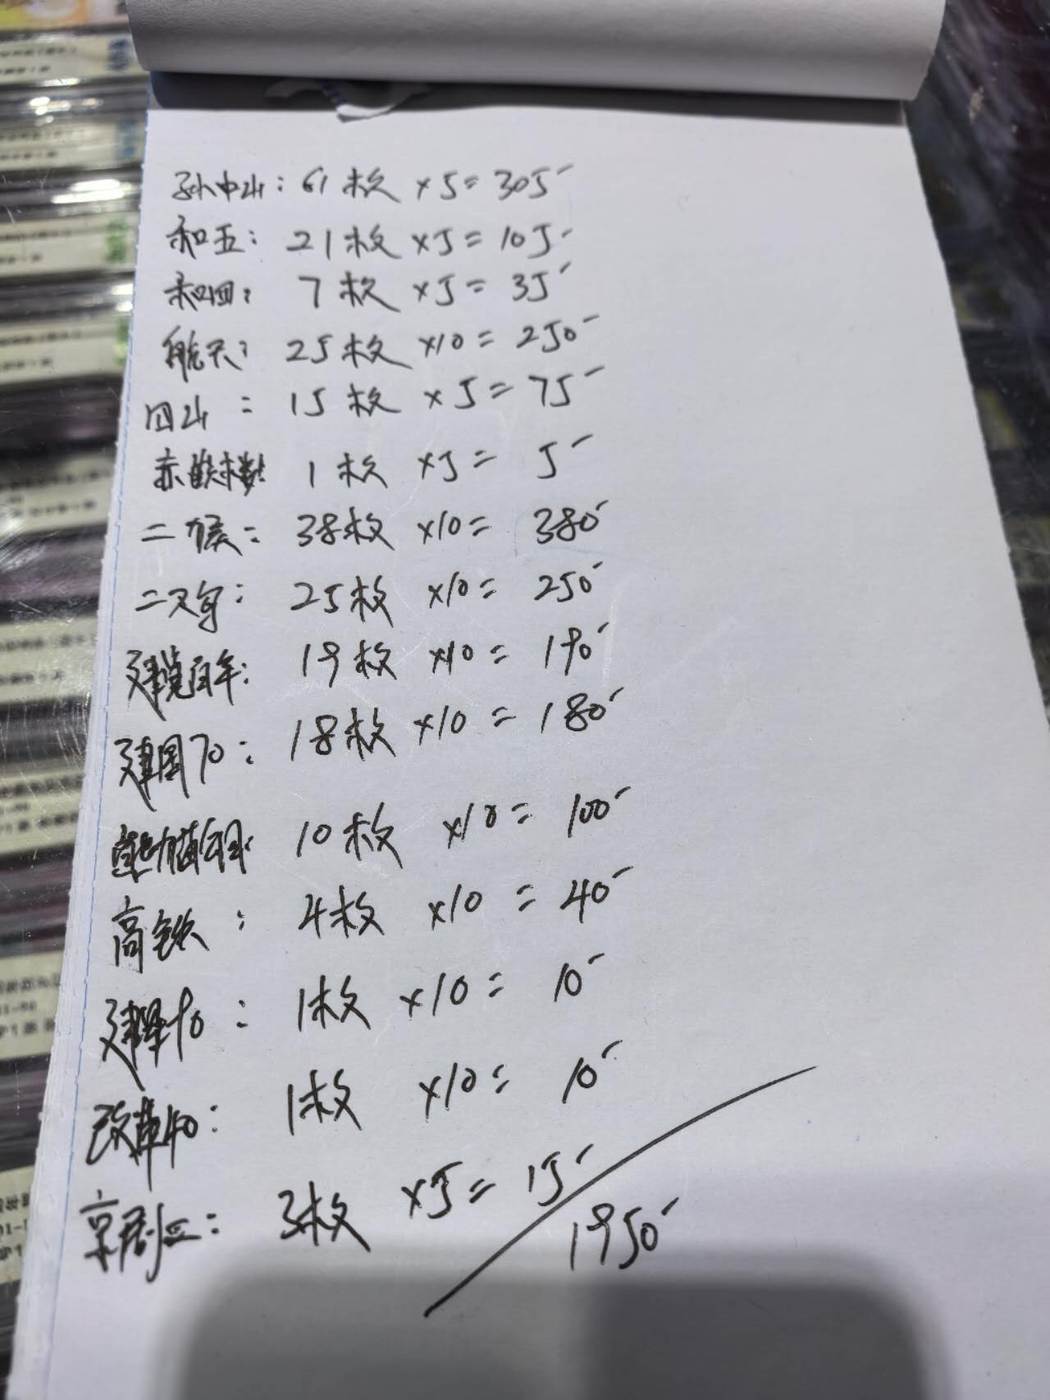 孙中山: 61枚 ×5= 305
和五: 21枚 ×5= 105
和四: 7枚 ×5= 35
航天: 25枚 ×10= 250
四山: 15枚 ×5= 75
赤嵌楼 1枚 ×5= 5
二猴: 38枚 ×10= 380
二鸡: 25枚 ×10= 250
建党百年: 19枚 ×10= 190
建国70: 18枚 ×10= 180
10枚 ×10= 100
高铁: 4枚 ×10= 40
建军90: 1枚 ×10= 10
改革40: 1枚 ×10= 10
京剧: 3枚 ×5= 15
1950